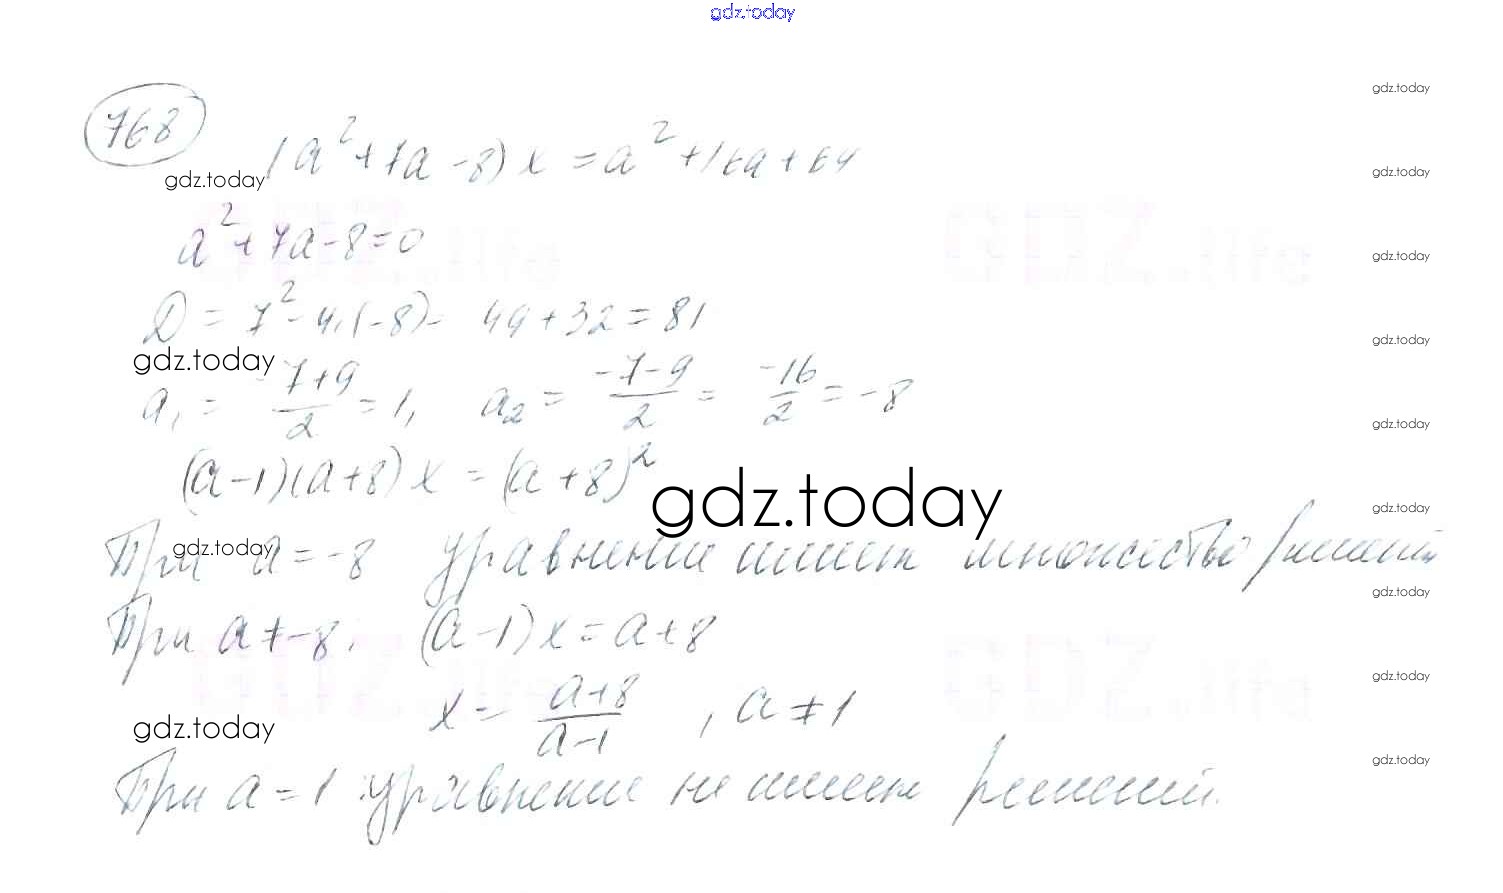 gdz.today
gdz.today
768
(a²+7a-8)x=a²+16a+64
gdz.today
gdz.today
GDZ.life GDZ.life
a²+7a-8=0
gdz.today
D=7²-4·(-8)= 49+32=81
gdz.today
gdz.today
a₁= -7+9/2 =1, a₂= -7-9/2 = -16/2 =-8
gdz.today
(a-1)(a+8)x=(a+8)²
gdz.today
gdz.today
gdz.today
При a=-8 уравнение имеет множество решений
gdz.today
При a≠-8: (a-1)x=a+8
GDZ.life GDZ.life
gdz.today
x= a+8/a-1 , a≠1
gdz.today
gdz.today
При a=1 уравнение не имеет решений.